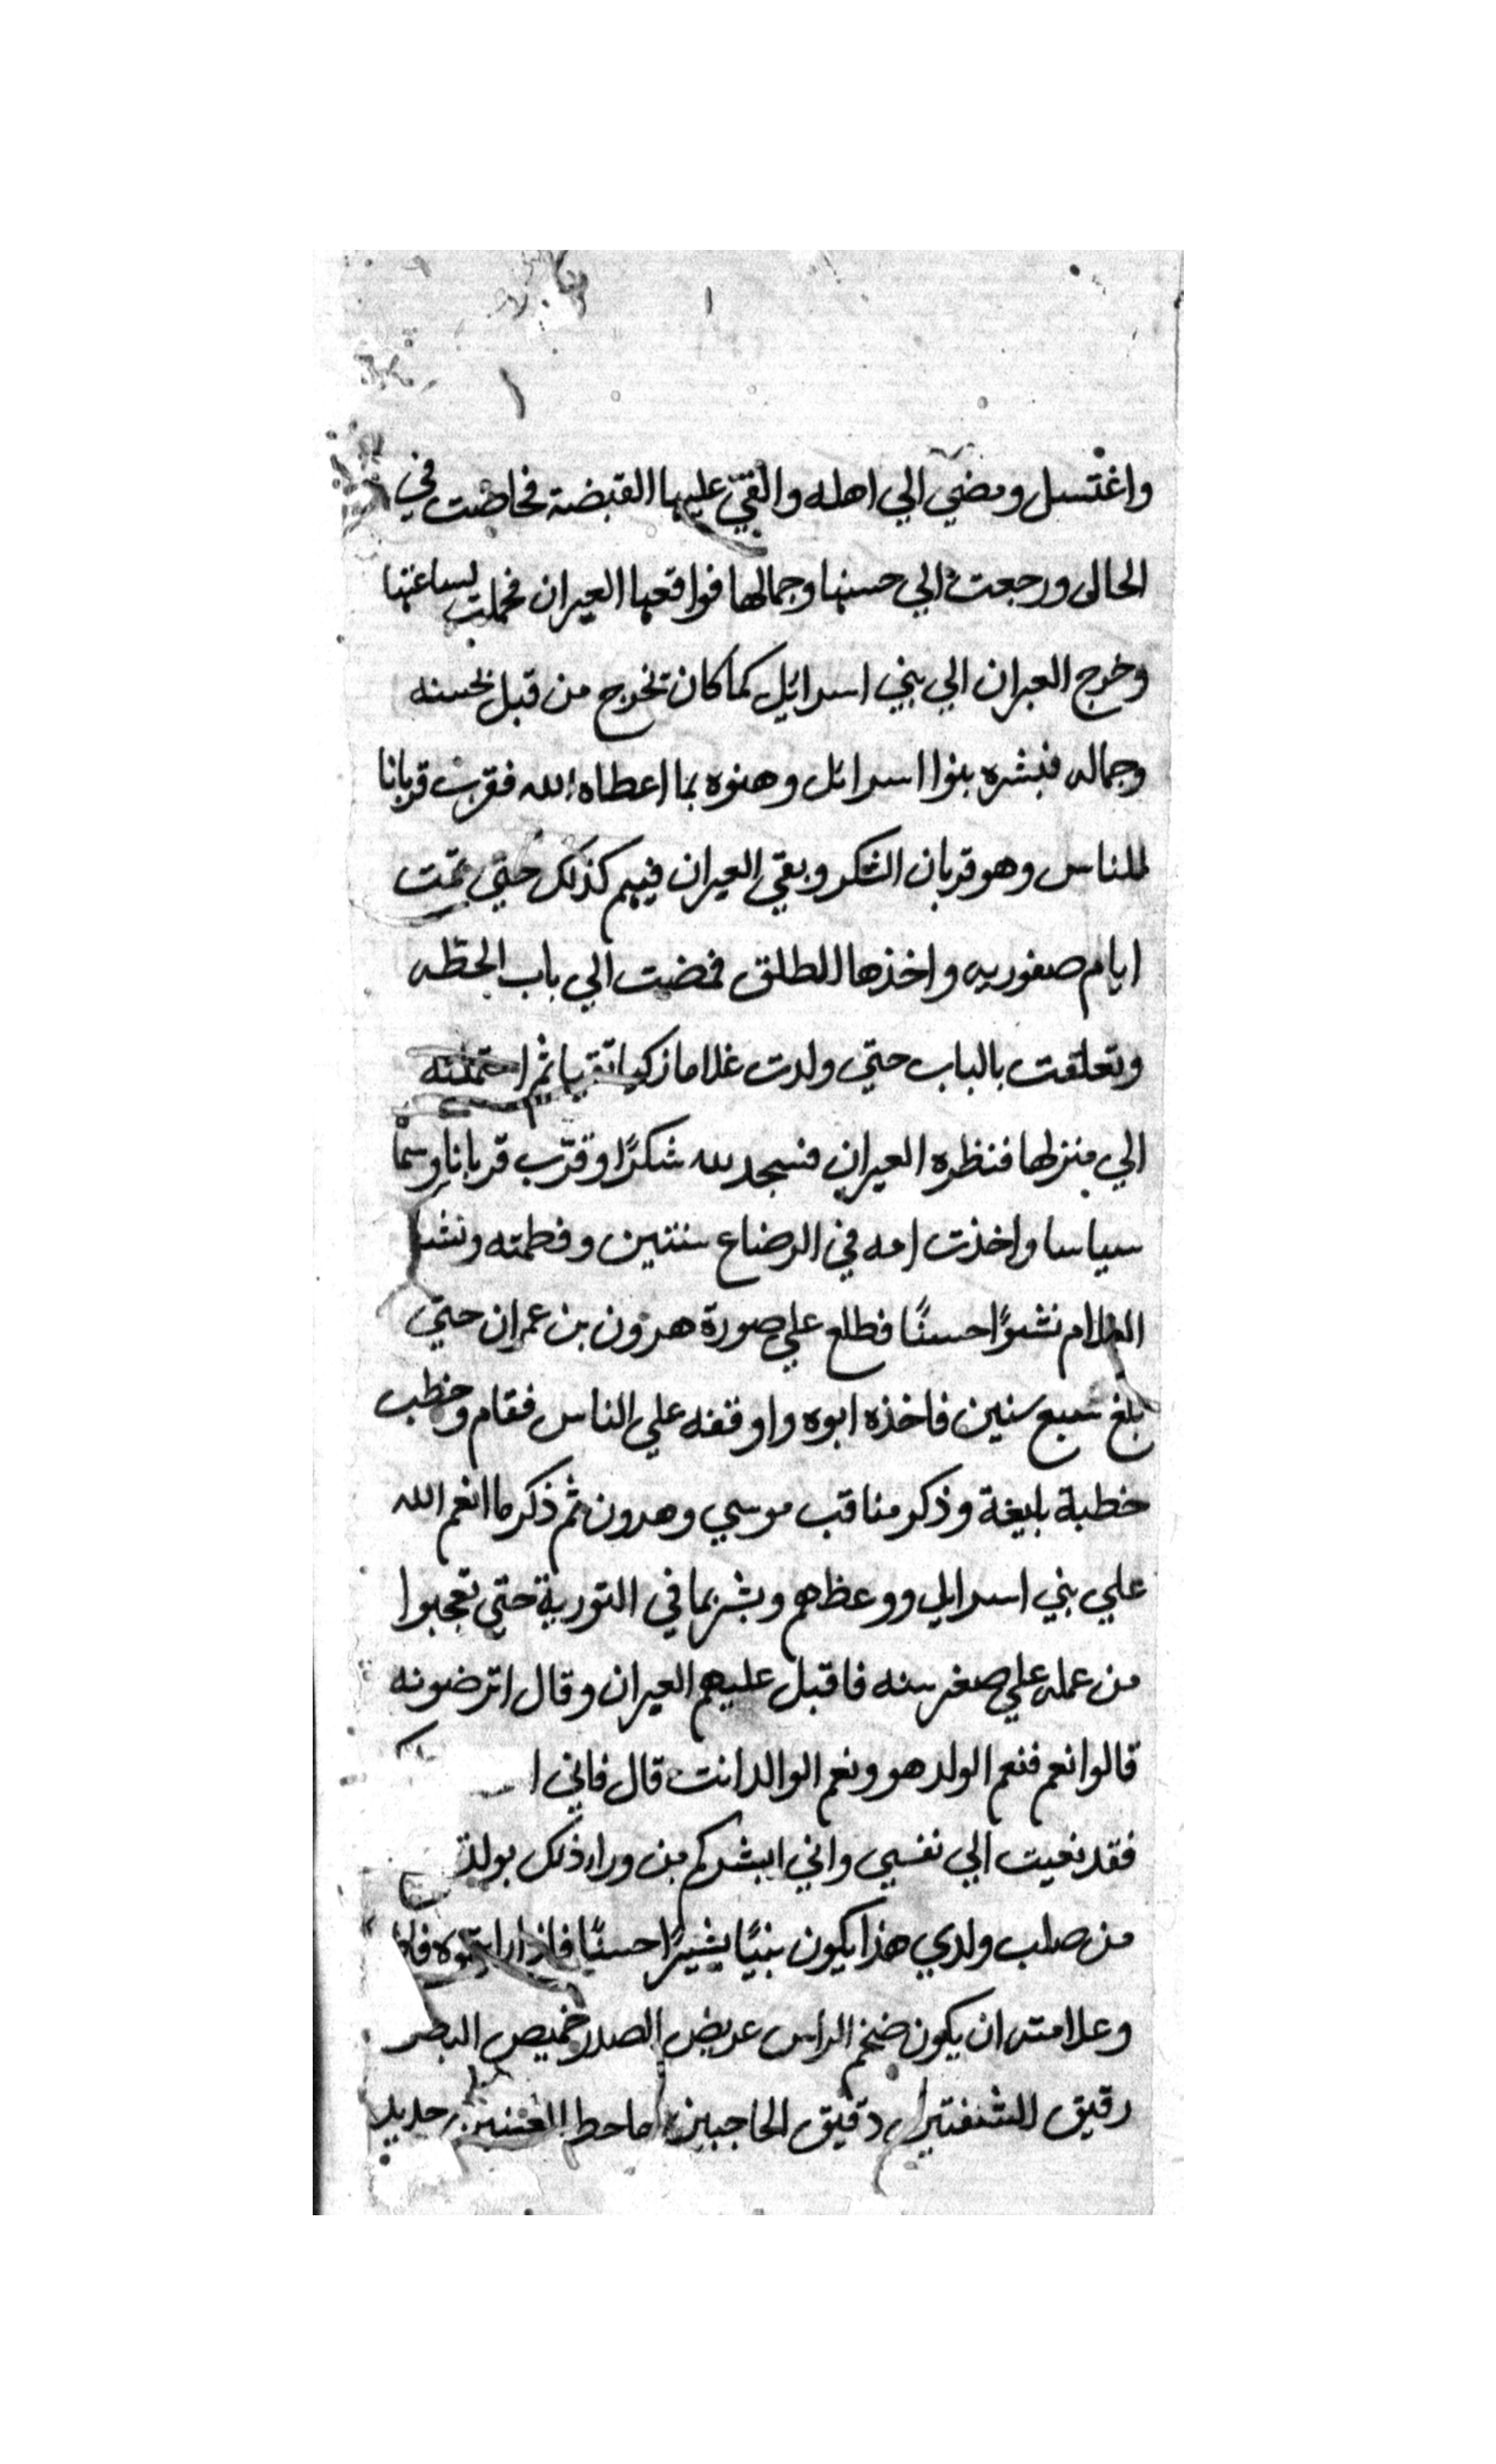 واغتسل ومضي الي اهله والقي عليها القبضة فحاضت في
الحال ورجعت الي حسنها وجمالها فواقعها العيران فحملت لساعتها
وخرج العيران الي بني اسرائيل كما كان تخرج من قبل بحسنه
وجماله فبشره بنوا اسرائل وهنوه بما اعطاه الله فقرب قربانا
للناس وهو قربان الشكر وبقي العيران فيهم كذلك حتي تمت
ايام صفوريه واخذها الطلق فمضت الي باب الحطه
وتعلقت بالباب حتي ولدت غلاما زكيا تقيا ثم احتملته
الي منزلها فنظره العيران فسجد لله شكرًا وقرّب قربانا وسما
سياسا واخذت امه في الرضاع سنتين وفطمته ونشا
الغلام نشوًا حسنًا فطلع علي صورة هرون بن عمران حتي
بلغ سبع سنين فاخذه ابوه واوقفه علي الناس فقام وخطب
خطبة بليغة وذكر مناقب موسي وهرون ثم ذكر ما انعم الله
علي بني اسرايل ووعظهم وبشر بما في التورية حتي تعجبوا
من عمله علي صغر سنه فاقبل عليهم العيران وقال اترضونه
قالوا نعم فنعم الولد هو ونعم الوالد انت قال فاني
فقد نعيت الي نفسي واني ابشركم من وراء ذلك بولد
من صلب ولدي هذا يكون نبيًا بشيرًا حسنًا فاذا رايتموه
وعلامته ان يكون ضخم الراس عريض الصدر خميص البطن
رقيق الشفتين دقيق الحاجبين حديد